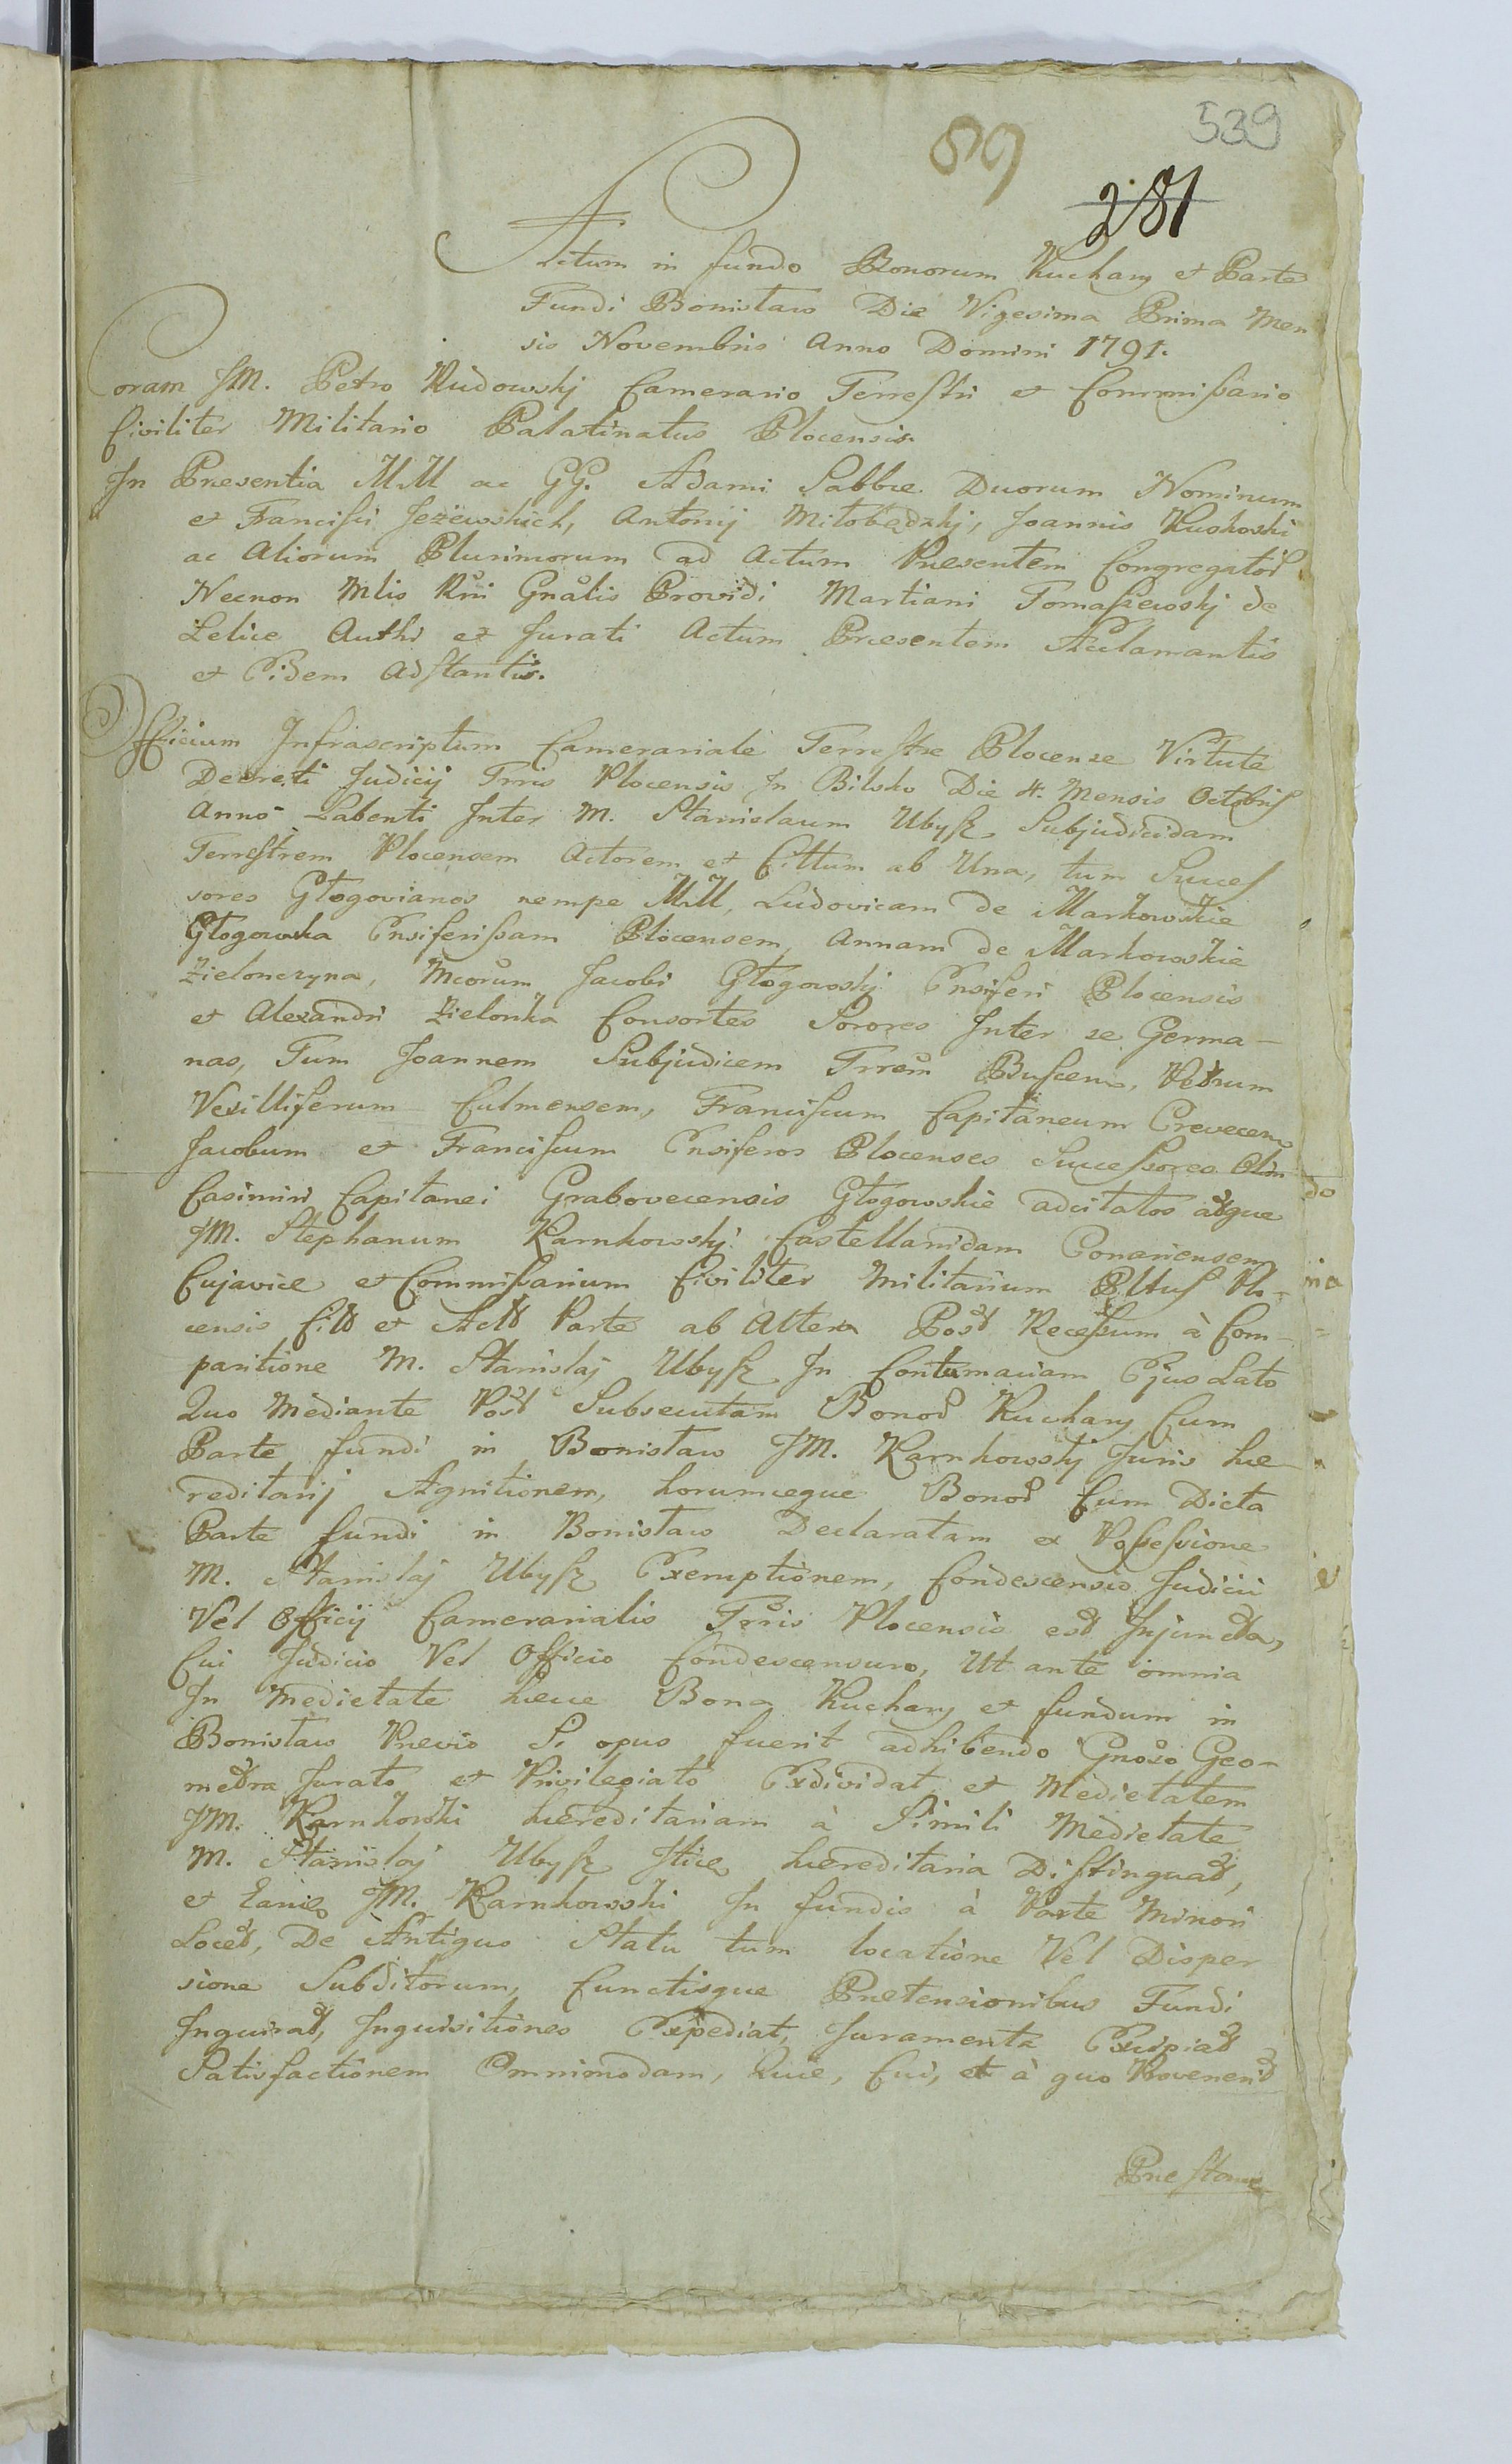 539
89
281
Actum in fundo Bonorum Kuchary et Parte
Fundi Bonisław Die Vigesima Prima Men
sis Novembris Anno Domini 1791.
Coram JM. Petro Rudowskj Camerario Terrestri et Commissario
Civiliter Militario Palatinatus Plocensis.
In Presentia MM ac GG. Adami Sabbæ Duorum Nominum
et Francisci Jeżewskich, Antonij Miłobędzkj, Joannis Ruskowski
ac Aliorum Plurimorum ad Actum Præsentem Congregator
Necnon Mlis Rni Gnalis Providi Martiani Tomaszewskj de
Lelice Authi et Jurati Actum Præsentem Acclamantis
et Eidem Adstantis.
Officium Infrascriptum Camerariale Terrestre Plocense Virtute
Decreti Judicij Trris Plocensis In Bilsko Die 4. Mensis Octobris
Anno Labenti Inter M. Stanislaum Ubysz Subjudicidam
Terrestrem Plocensem Actorem et Cittum ab Una, tum Succes
sores Głogovianos nempe MM, Ludovicam de Markowskie
Głogowska Ensiferissam Plocensem, Annam de Markowskie
Zieloneczyna, Mcorum Jacobi Głogowskj Ensiferi Plocensis
et Alexandri Zielonka Consortes Sorores Inter se Germa-
nas, Tum Joannem Subjudicem Trrem Buscens, Petrum
Vexilliferum Culmensem, Franciscum Capitaneum Crevecens
Jacobum et Franciscum Ensiferos Plocenses Successores Olim
Casimiri Capitanei Grabovecensis Głogowskie adcitatos atque
JM. Stephanum Karnkowskj Castellanidam Conariensem
Cujaviæ et Commissarium Civiliter Militarium Plttus Plo-
censis Citt et Actt Parte ab Altera Post Recessum à Com-
paritione M. Stanislaj Ubysz In Contumaciam Ejus Lato
Quo Mediante Post Subsecutam Bonor Kuchary Cum
Parte fundi in Bonisław JM. Karnkowskj Juris hæ
reditarij Agnitionem, horumceque Bonor Cum Dicta
Parte fundi in Bonisław Declaratam ex Possessione
M. Stanislaj Ubysz Exemptionem, Condescensio Judicii
Vel Officij Camerarialis Trris Plocensis est Injuncta,
Cui Judicio Vel Officio Condescensuro, Ut ante omnia
In Medietate hæce Bona Kuchary et fundum in
Bonisław Prævio Si opus fuerit adhibendo Gnoso Geo-
metra Jurato et Privilegiato Exdividat et Medietatem
JM. Karnkowski hæreditariam à Simili Medietate
M. Stanislaj Ubysz Itice hæreditaria Distinguat,
et JM. Karnkowski In fundis à Parte Minori
Locet, De Antiquo Statu tum locatione Vel Disper
sione Subditorum, Cunctisque Prætensionibus Fundi
Inquirat, Inquisitiones Expediat, Juramenta Excipiat
Satisfactionem Omnimodam, Quæ, Cui, et à quo Provenerit
Præstand